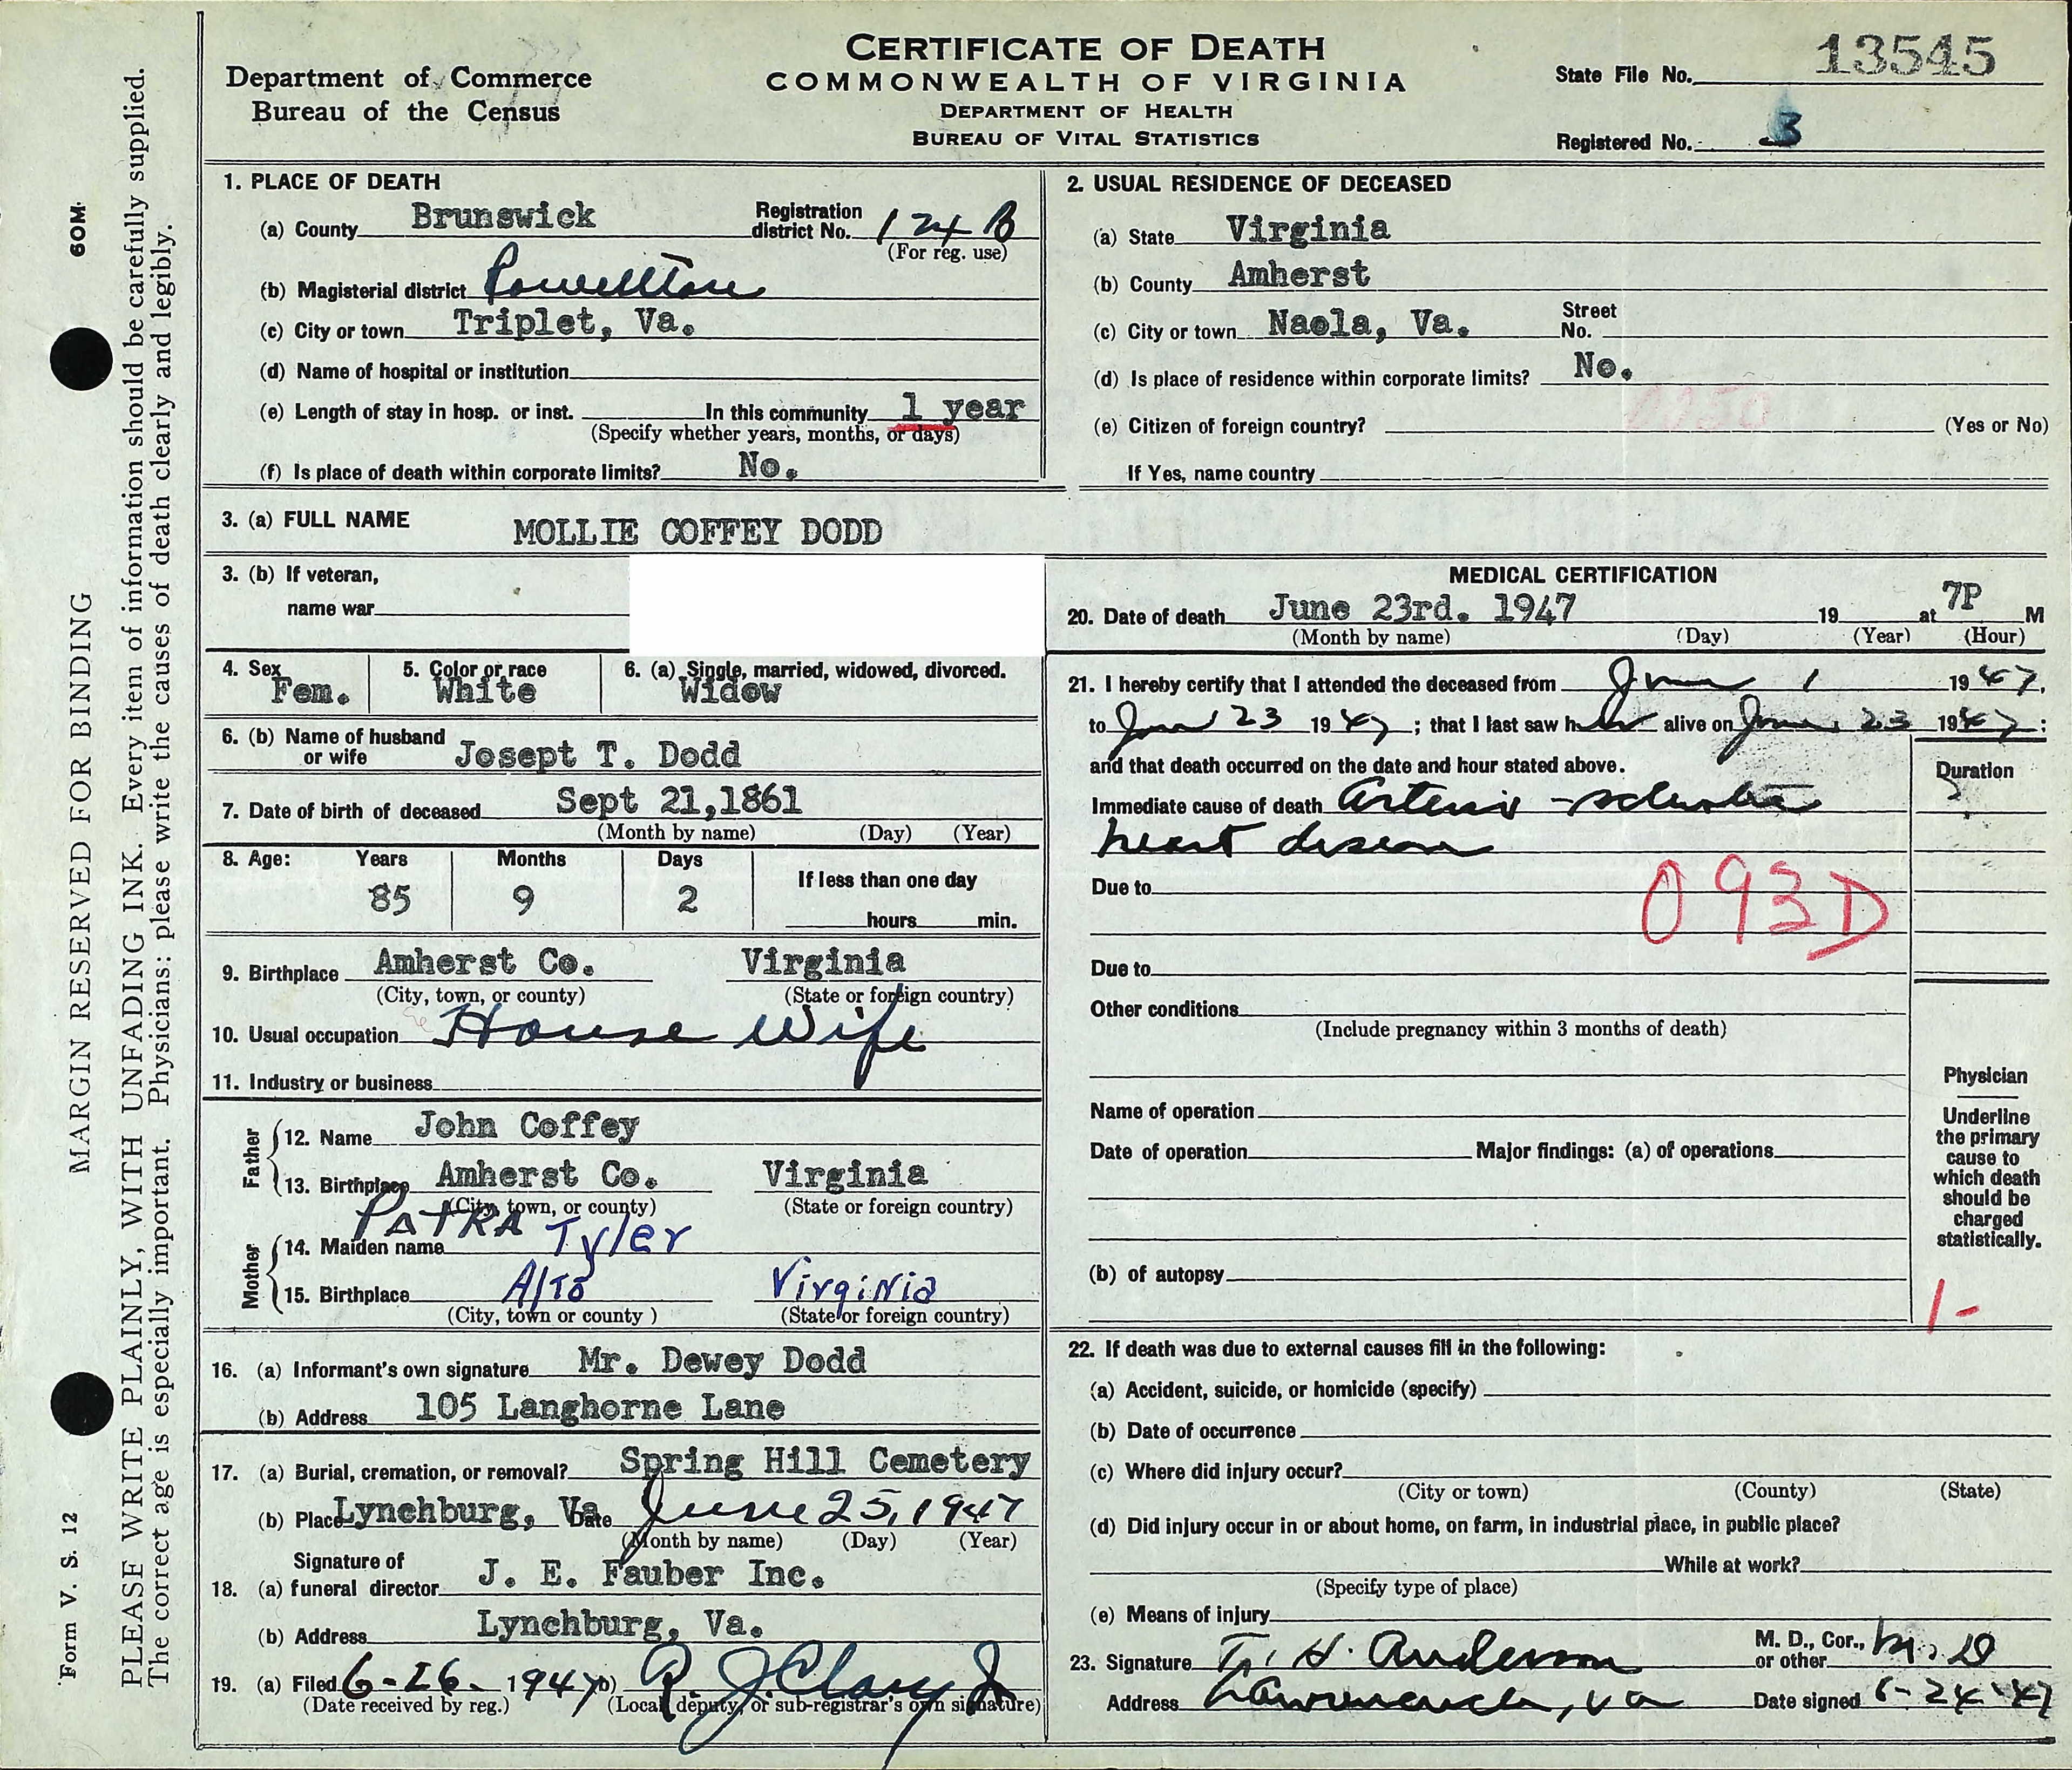 CERTIFICATE OF DEATH
COMMONWEALTH OF VIRGINIA
DEPARTMENT OF HEALTH
BUREAU OF VITAL STATISTICS
Department of Commerce
Bureau of the Census
State File No. 13545
Registered No. 3
1. PLACE OF DEATH
(a) County Brunswick Registration district No. 124 B
(For reg. use)
(b) Magisterial district Powellton
(c) City or town Triplet, Va.
(d) Name of hospital or institution
(e) Length of stay in hosp. or inst. In this community 1 year
(Specify whether years, months, or days)
(f) Is place of death within corporate limits? No.
2. USUAL RESIDENCE OF DECEASED
(a) State Virginia
(b) County Amherst
(c) City or town Naola, Va. Street No.
(d) Is place of residence within corporate limits? No.
(e) Citizen of foreign country? (Yes or No)
If Yes, name country
3. (a) FULL NAME MOLLIE COFFEY DODD
3. (b) If veteran,
name war
4. Sex Fem.
5. Color or race White
6. (a) Single, married, widowed, divorced. Widow
6. (b) Name of husband or wife Josept T. Dodd
7. Date of birth of deceased Sept 21,1861
(Month by name) (Day) (Year)
8. Age: Years Months Days
85 9 2
If less than one day
hours min.
9. Birthplace Amherst Co. Virginia
(City, town, or county) (State or foreign country)
10. Usual occupation House Wife
11. Industry or business
Father
12. Name John Coffey
13. Birthplace Amherst Co. Virginia
(City, town, or county) (State or foreign country)
Mother
14. Maiden name PATRA Tyler
15. Birthplace Alto Virginia
(City, town or county ) (State or foreign country)
16. (a) Informant's own signature Mr. Dewey Dodd
(b) Address 105 Langhorne Lane
17. (a) Burial, cremation, or removal? Spring Hill Cemetery
(b) Place Lynchburg, Va Date June 25, 1947
(Month by name) (Day) (Year)
Signature of
18. (a) funeral director J. E. Fauber Inc.
(b) Address Lynchburg, Va.
19. (a) Filed 6-26-1947 (b) R. J. Clary Jr
(Date received by reg.) (Local deputy, or sub-registrar's own signature)
MEDICAL CERTIFICATION
20. Date of death June 23rd. 1947 19 at 7P M
(Month by name) (Day) (Year) (Hour)
21. I hereby certify that I attended the deceased from June 1 1947,
to June 23 1947; that I last saw her alive on June 23 1947:
and that death occurred on the date and hour stated above.
Duration
Immediate cause of death Arterio-sclerotic
heart disease
Due to
093D
Due to
Other conditions
(Include pregnancy within 3 months of death)
Name of operation
Date of operation Major findings: (a) of operations
(b) of autopsy
Physician
Underline
the primary
cause to
which death
should be
charged
statistically.
1-
22. If death was due to external causes fill in the following:
(a) Accident, suicide, or homicide (specify)
(b) Date of occurrence
(c) Where did injury occur?
(City or town) (County) (State)
(d) Did injury occur in or about home, on farm, in industrial place, in public place?
While at work?
(Specify type of place)
(e) Means of injury
23. Signature T. H. Anderson M. D., Cor., or other M.D
Address Lawrenceville, Va Date signed 6-24-47
60M
MARGIN RESERVED FOR BINDING
PLEASE WRITE PLAINLY, WITH UNFADING INK. Every item of information should be carefully supplied.
The correct age is especially important. Physicians: please write the causes of death clearly and legibly.
Form V. S. 12